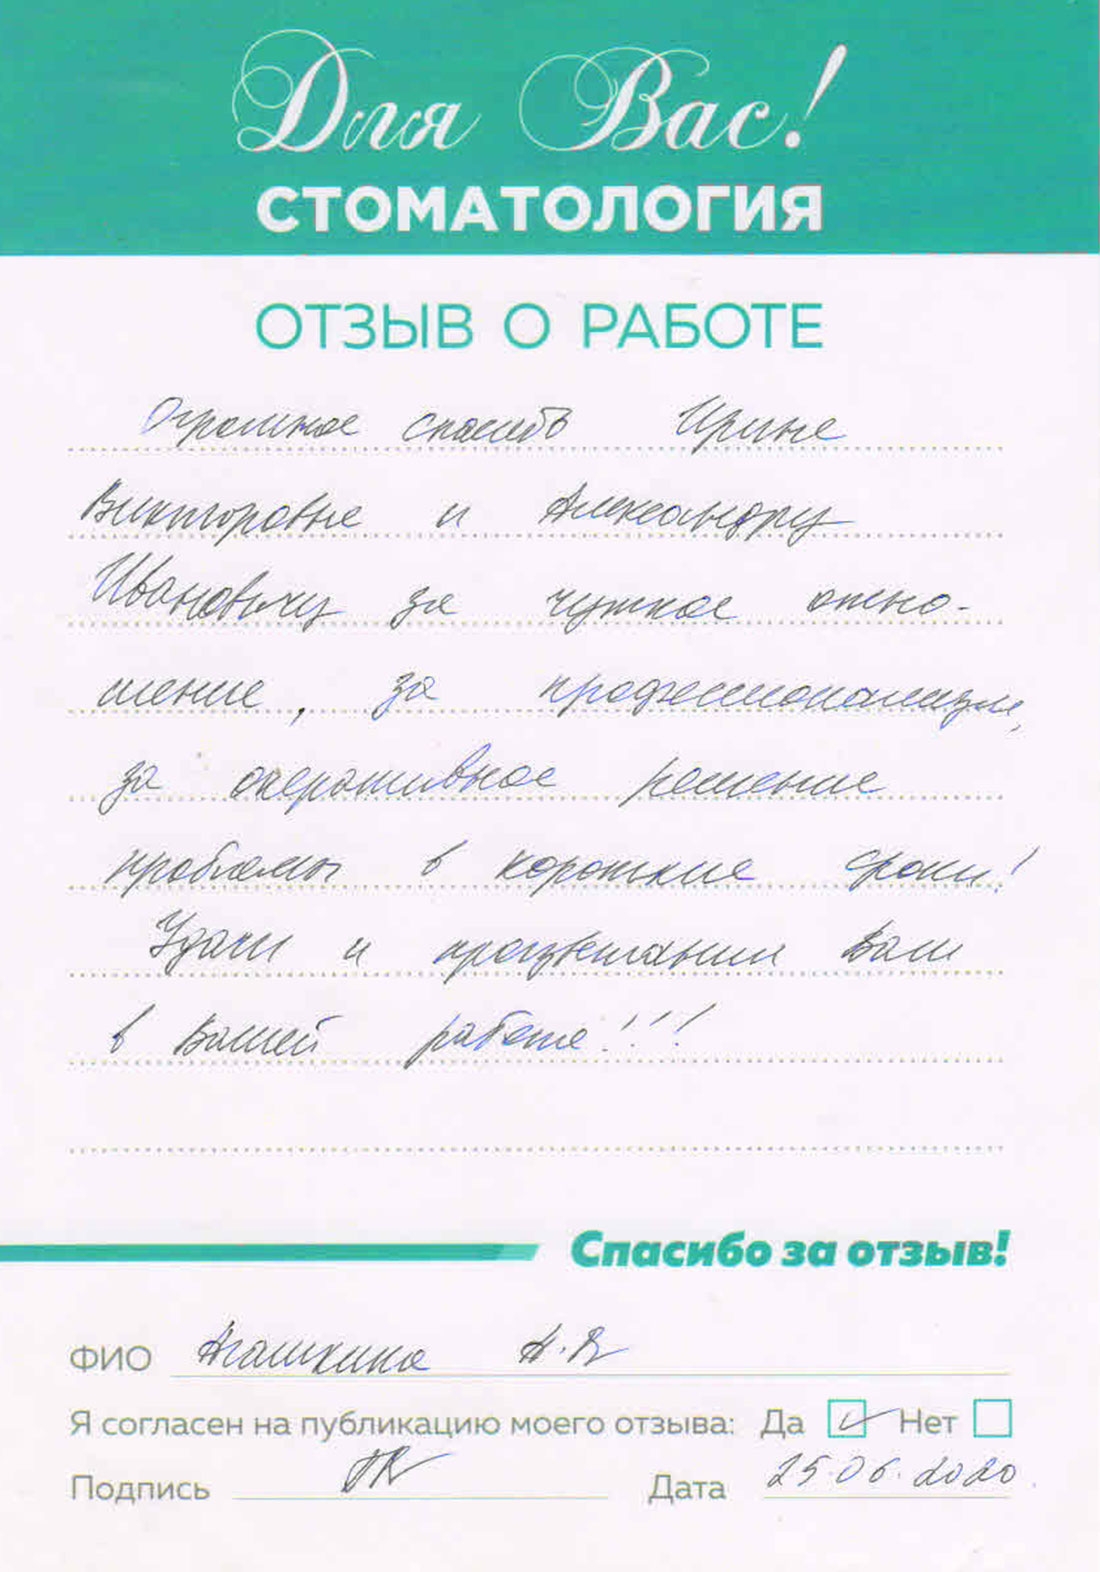 Для Вас!
СТОМАТОЛОГИЯ
ОТЗЫВ О РАБОТЕ
Огромное спасибо Ирине
Викторовне и Александру
Ивановичу за чуткое отно-
шение, за профессионализм,
за оперативное решение
проблемы в короткие сроки!
Удачи и процветания Вам
в Вашей работе!!!
Спасибо за отзыв!
ФИО Агашкина А.В
Я согласен на публикацию моего отзыва: Да Нет
Подпись Дата 25.06.2020